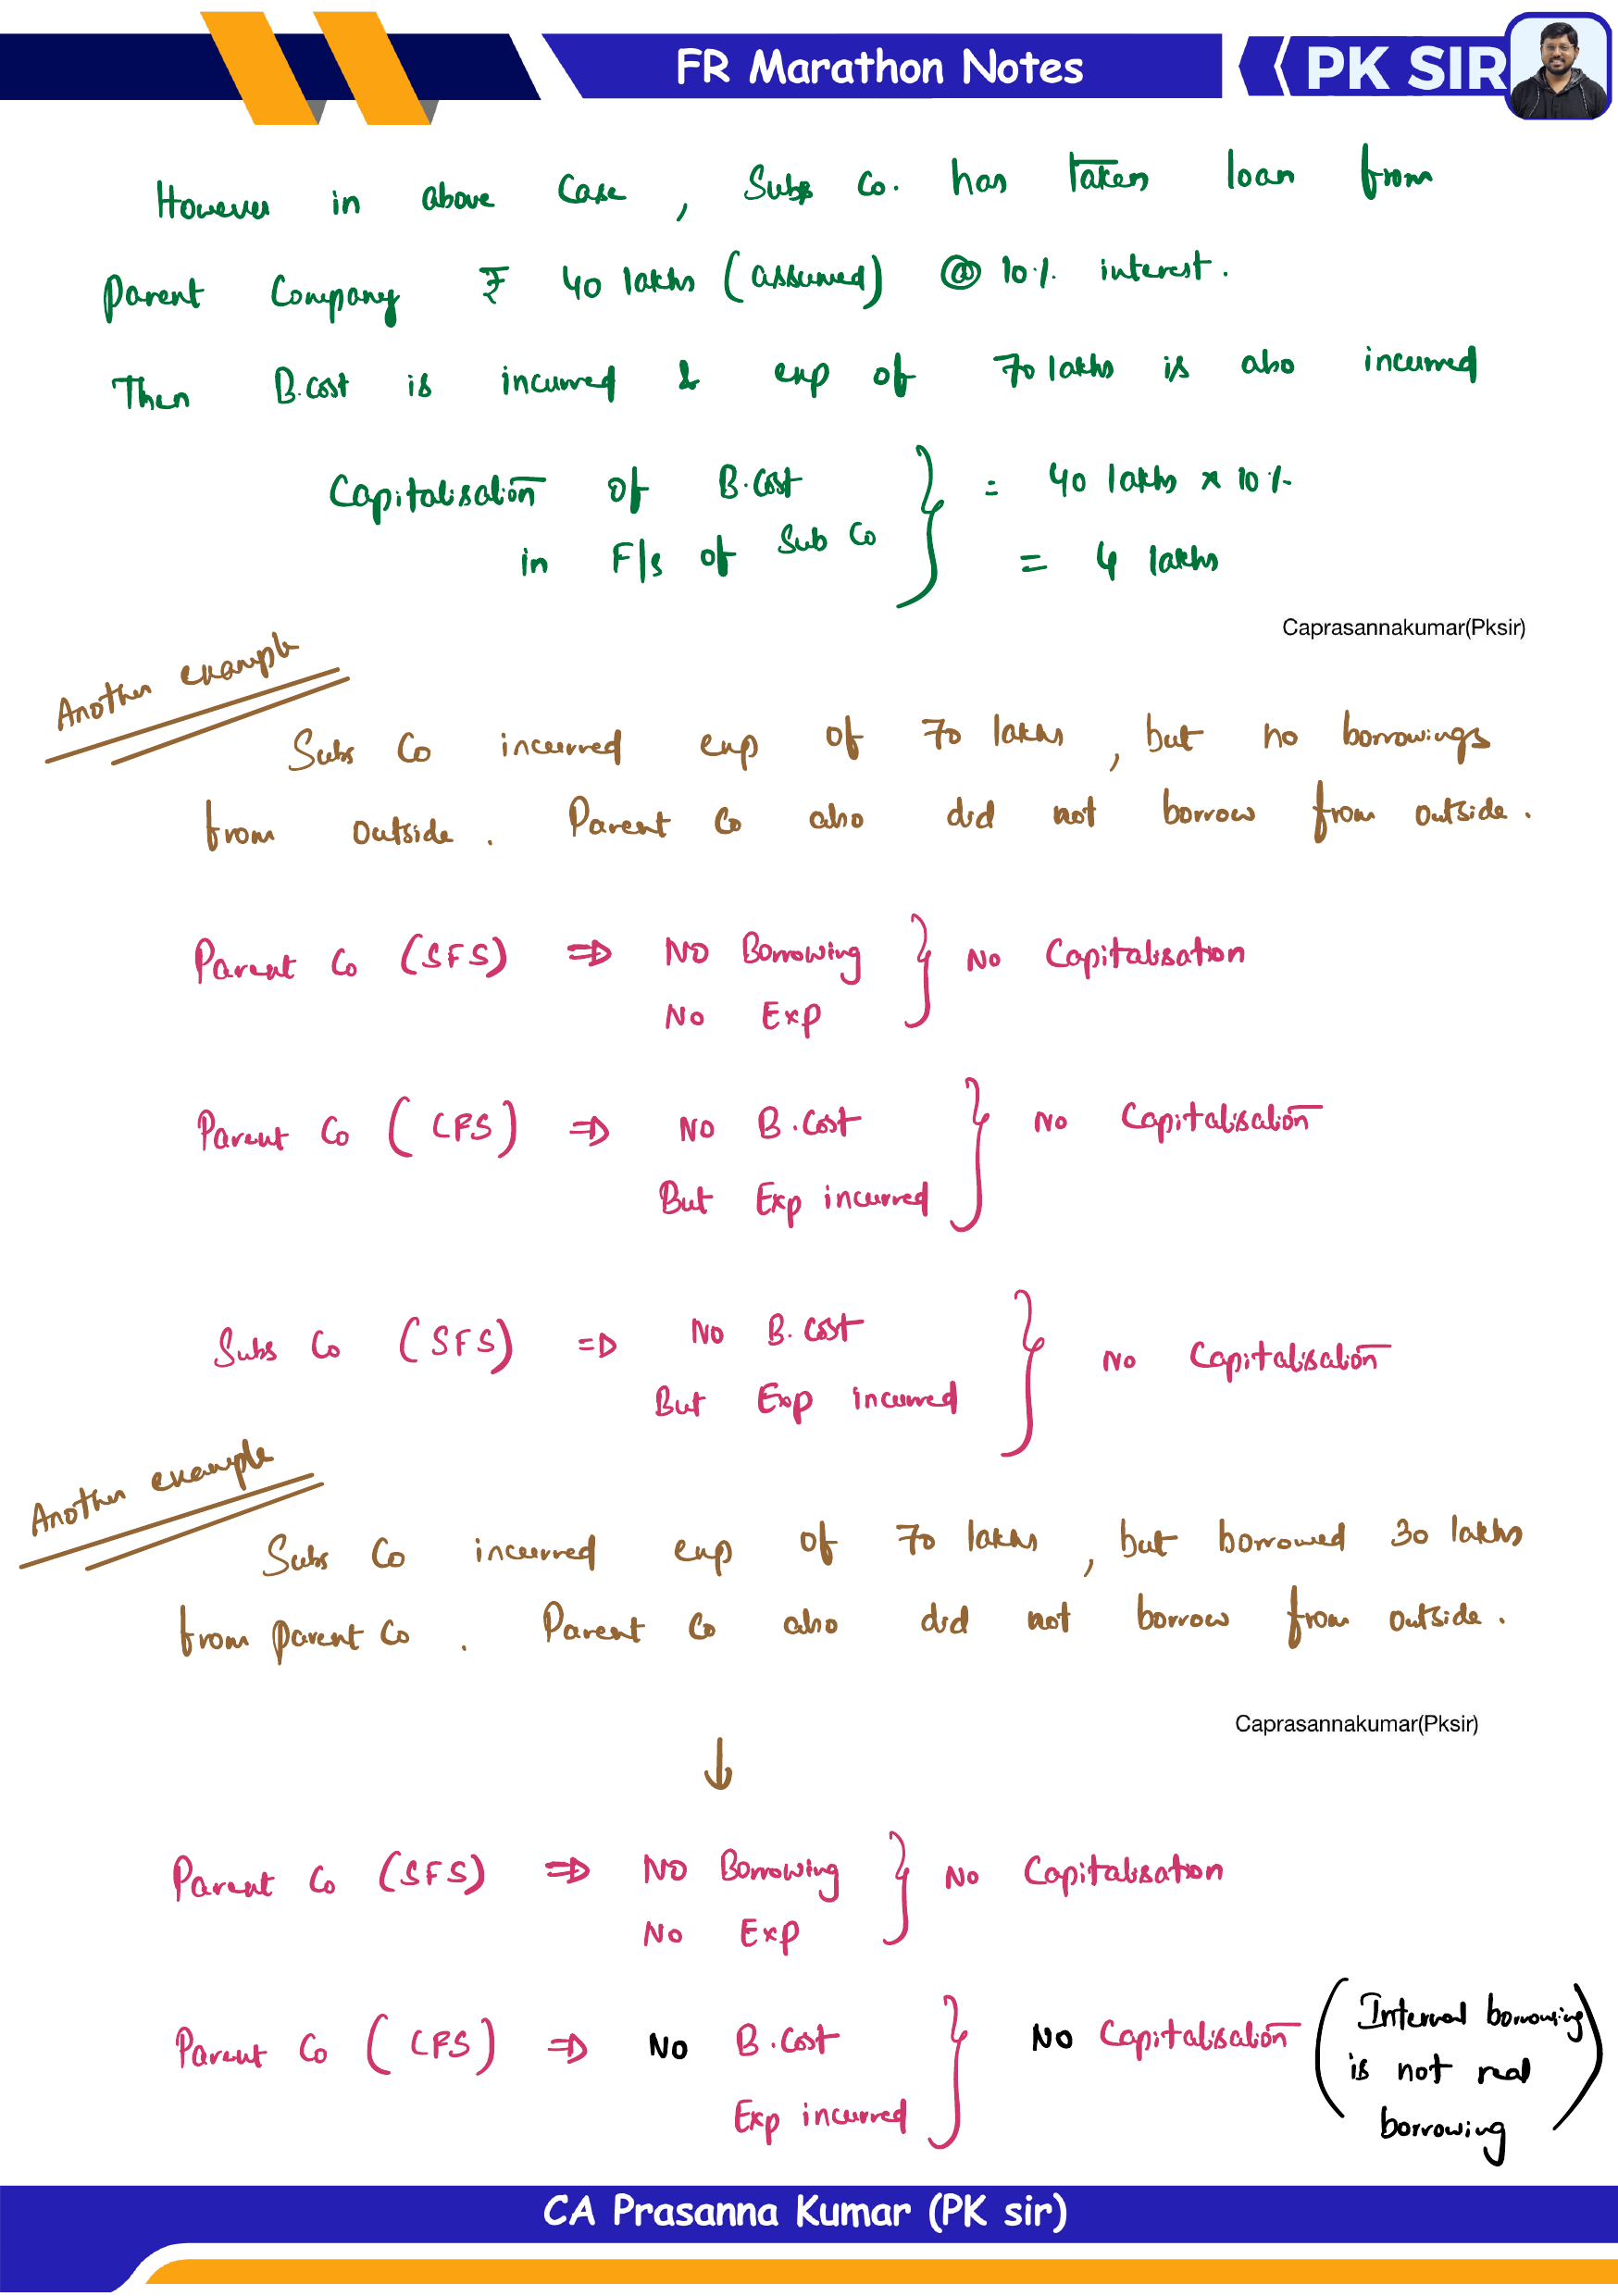 FR Marathon Notes
PK SIR
However in above Case , Subs Co. has Taken loan from
Parent Company ₹ 40 lakhs (assumed) @ 10% interest.
Then B.Cost is incurred & exp of 70 lakhs is also incurred
Capitalisation of B.Cost = 40 lakhs x 10%
in F/s of Sub Co = 4 lakhs
Caprasannakumar(Pksir)
Another example
Subs Co incurred exp of 70 lakhs , but no borrowings
from outside . Parent Co also did not borrow from outside .
Parent Co (SFS) ⇒ NO Borrowing
No Exp
No Capitalisation
Parent Co (CFS) ⇒ NO B.Cost
But Exp incurred
No Capitalisation
Subs Co (SFS) ⇒ No B.Cost
But Exp incurred
No Capitalisation
Another example
Subs Co incurred exp of 70 lakhs , but borrowed 30 lakhs
from parent Co . Parent Co also did not borrow from outside .
Caprasannakumar(Pksir)
↓
Parent Co (SFS) ⇒ NO Borrowing
No Exp
No Capitalisation
Parent Co (CFS) ⇒ No B.Cost
Exp incurred
No Capitalisation (Internal borrowing
is not real
borrowing)
CA Prasanna Kumar (PK sir)